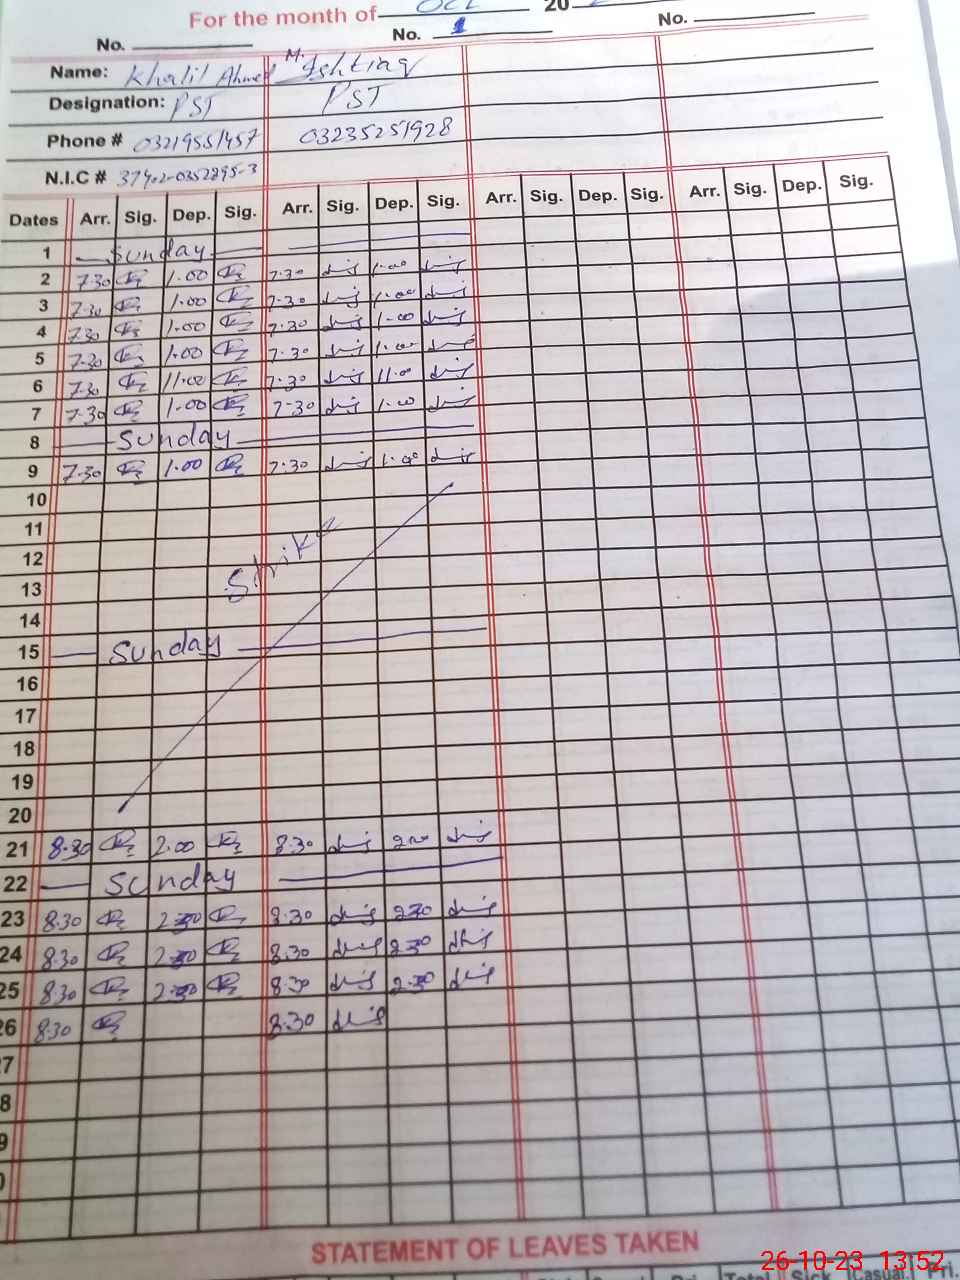 For the month of Oct 20
No. No. 1 No.
Name: Khalil Ahmed M. Ishtiaq
Designation: PST PST
Phone # 03219551457 03235251928
N.I.C # 37402-0352895-3
Dates Arr. Sig. Dep. Sig. Arr. Sig. Dep. Sig. Arr. Sig. Dep. Sig. Arr. Sig. Dep. Sig.
1 Sunday
2 7.30 1.00 7.30 1.00
3 7.30 1.00 7.30 1.00
4 7.30 1.00 7.30 1.00
5 7.30 1.00 7.30 1.00
6 7.30 11.00 7.30 11.0
7 7.30 1.00 7-30 1.00
8 Sunday
9 7.30 1.00 7.30 1.00
10
11
12 Strike
13
14
15 Sunday
16
17
18
19
20
21 8.30 2.00 8.30 2.00
22 Sunday
23 8.30 2.30 8.30 2.30
24 8.30 2.30 8.30 2.30
25 8.30 2.30 8.30 2.30
26 8.30 8.30
7
8
9
0
STATEMENT OF LEAVES TAKEN
26-10-23 13:52
Sick Casual Pri.